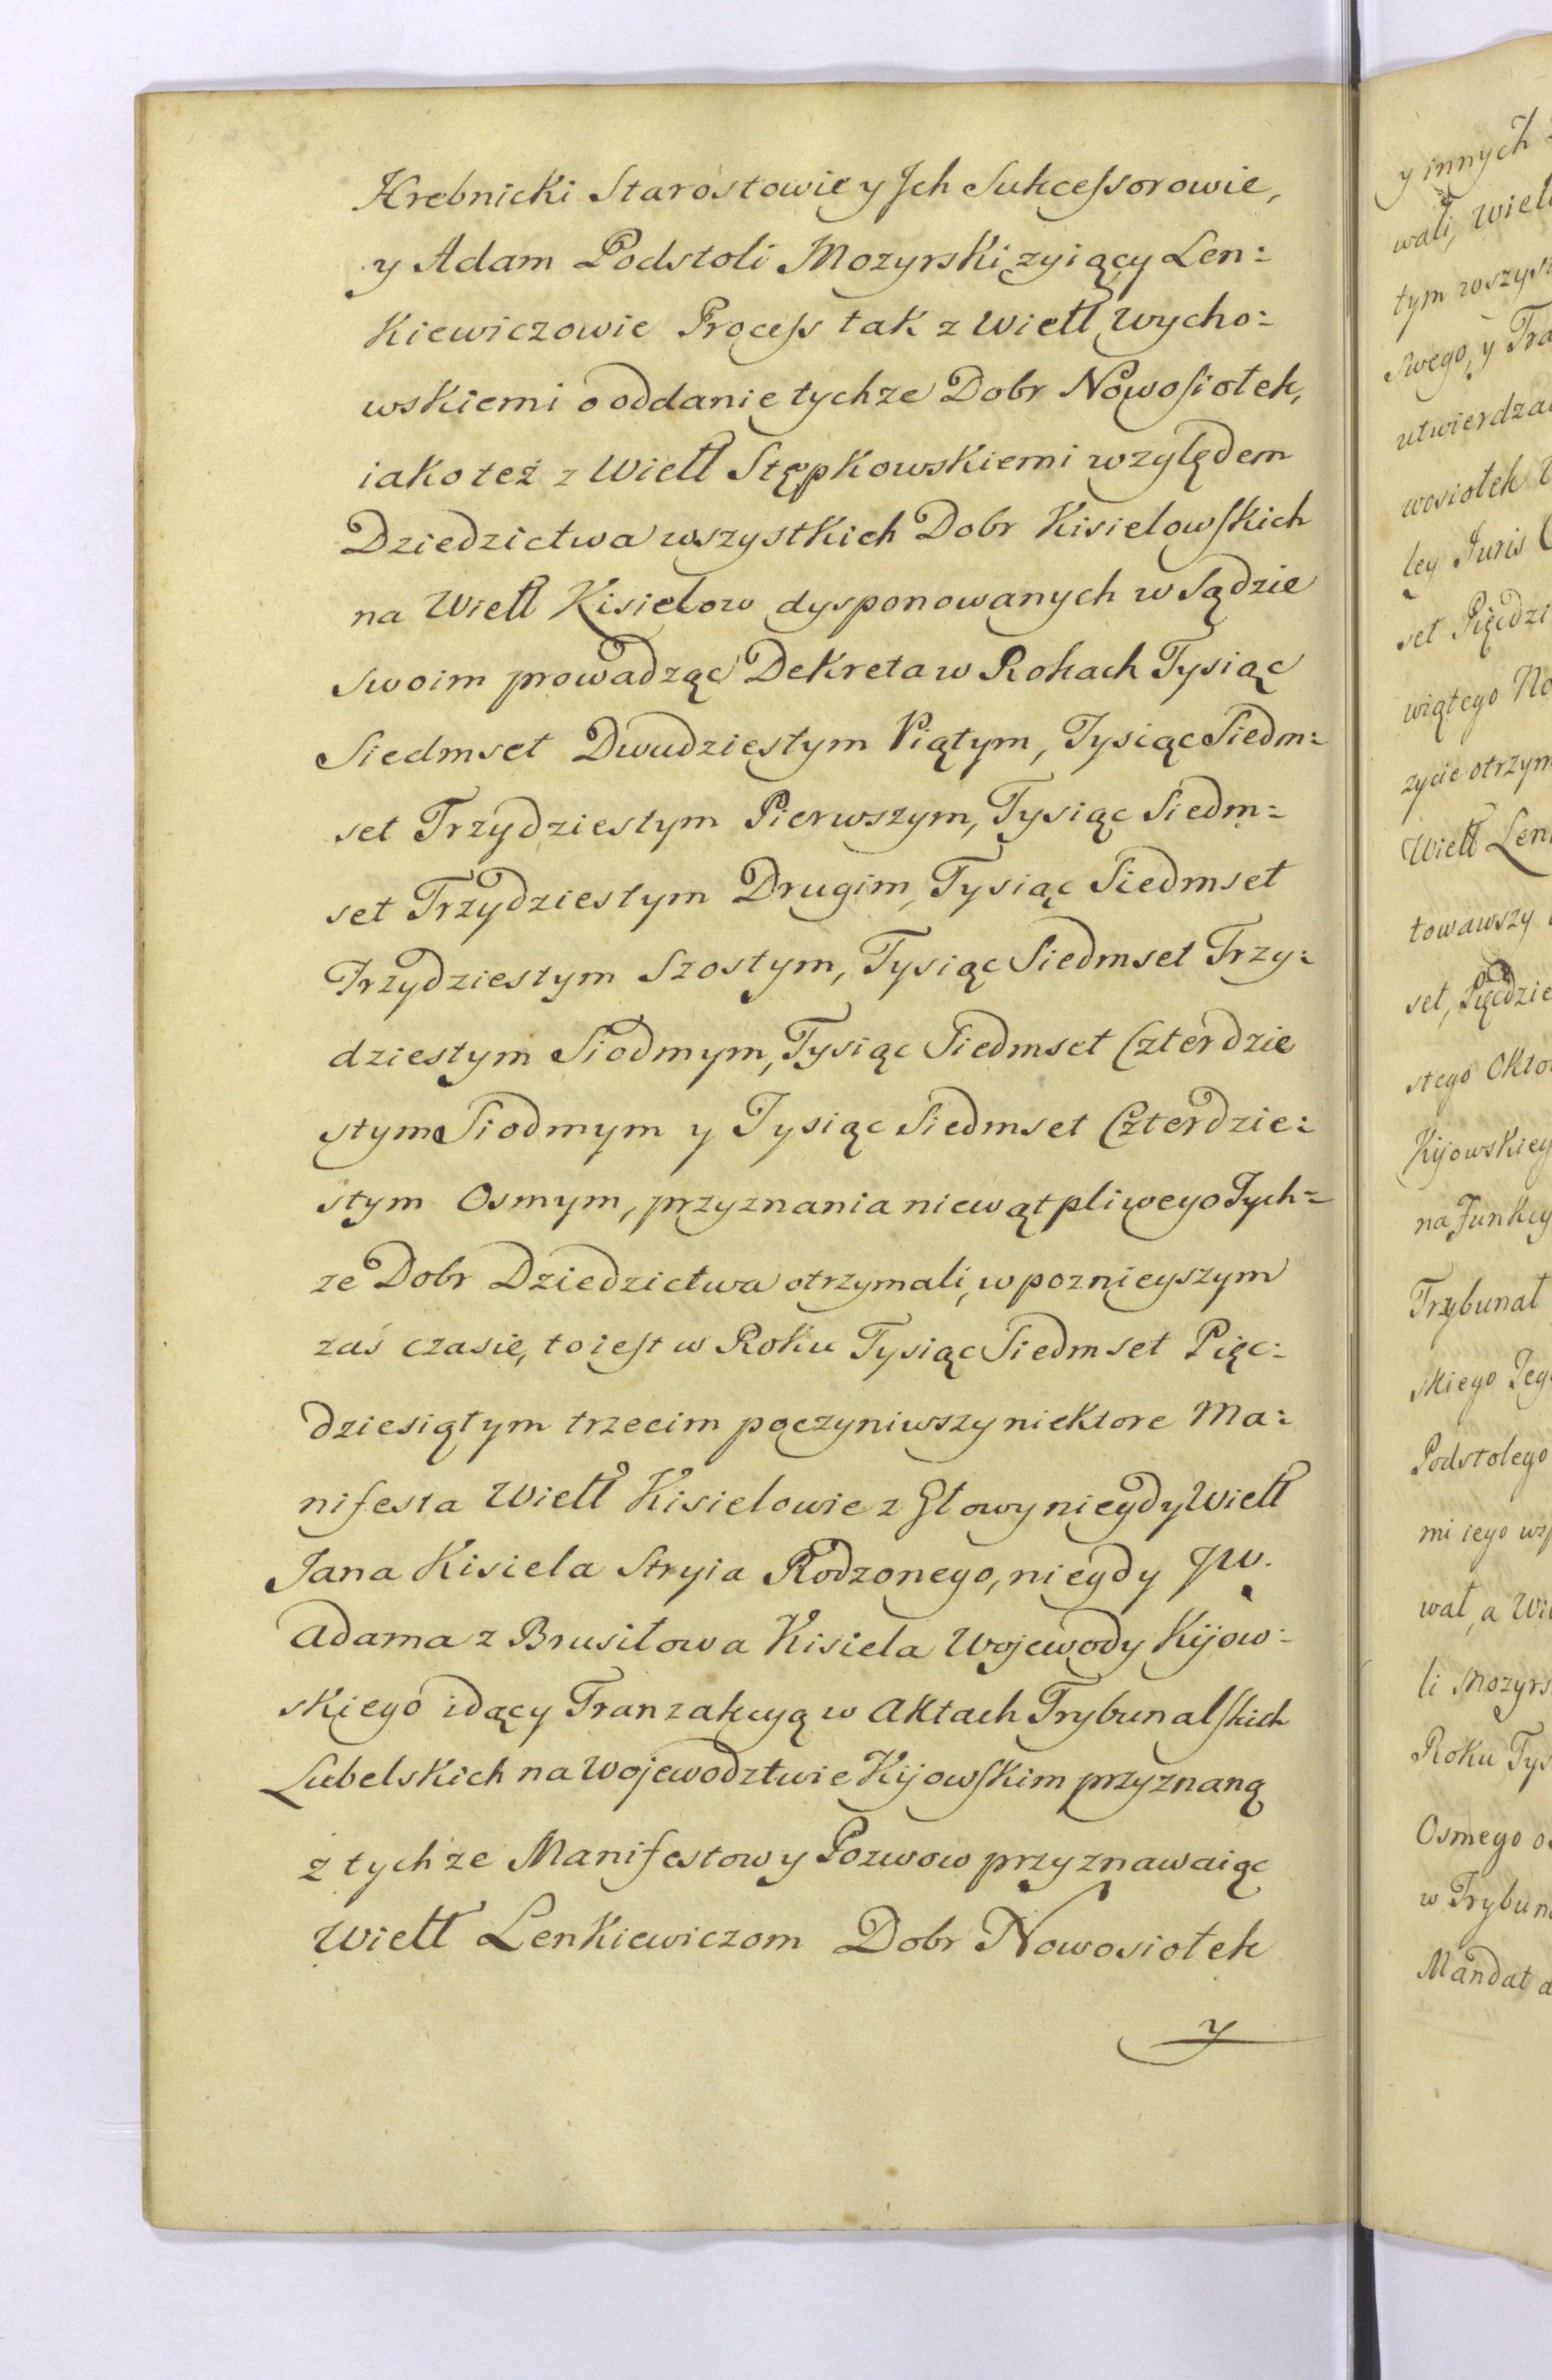 Hrebnicki Starostowie y Jch Sukcessorowie,
y Adam Podstoli Mozyrski zyiący Len:
kiewiczowie Process tak z Wiell Wycho:
wskiemi o oddanie tychze Dobr Nowosiołek,
iako też z Wiell Stępkowskiemi względem
Dziedzictwa wszystkich Dobr Kisielowskich
na Wiell Kisielow dysponowanych w Sądzie
swoim prowadząc Dekreta w Rokach Tysiąc
Siedmset Dwudziestym Piątym, Tysiąc Siedm:
set Trzydziestym Pierwszym, Tysiąc Siedm:
set Trzydziestym Drugim, Tysiąc Siedmset
Trzydziestym Szostym, Tysiąc Siedmset Trzy:
dziestym Siodmym, Tysiąc Siedmset Czterdzie
stym Siodmym y Tysiąc Siedmset Czterdzie:
stym Osmym, przyznania niewątpliwego Tych:
ze Dobr Dziedzictwa otrzymali, w poznieyszym
zaś czasie, to iest w Roku Tysiąc Siedmset Pięc:
dziesiątym trzecim poczyniwszy niektore Ma:
nifesta Wiell Kisielowie z Głowy niegdy Wiell
Jana Kisiela Stryia Rodzonego, niegdy JW.
Adama z Brusiłowa Kisiela Wojewody Kijow:
skiego idący Tranzakcyą w Aktach Trybunalskich
Lubelskich na Wojewodztwie Kijowskim przyznaną
z tychze Manifestow y Pozwow przyznawaiąc
Wiell Lenkiewiczom Dobr Nowosiołek
y
y innych
wali,
tym
Swego, y
wosiołek
ley Juris
set
wiątego
zycie
Wiell
towawszy
set,
stego
Kijowskiey
na Funkcy
Trzybunał
skiego
Podstolego
mi iego
wał, a
li
Roku
Osmego
w
Mandat